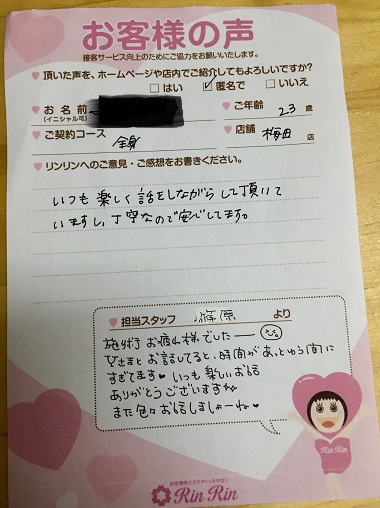 お客様の声
接客サービス向上のためにご協力をお願いいたします。
頂いた声を、ホームページや店内でご紹介してもよろしいですか?
はい 匿名で いいえ
お名前 ご年齢 23 歳
(イニシャル可)
ご契約コース 全身 店舗 梅田 店
リンリンへのご意見・ご感想をお書きください。
いつも楽しく話をしながらして頂いて
いますし、丁寧なので安心してます。
担当スタッフ 篠原 より
施術お疲れ様でしたー
お話してると、時間があっとゆう間に
すぎてます いつも楽しいお話
ありがとうございます
また色々お話しましょーね
Rin Rin
女性専用エステティックサロン
Rin Rin